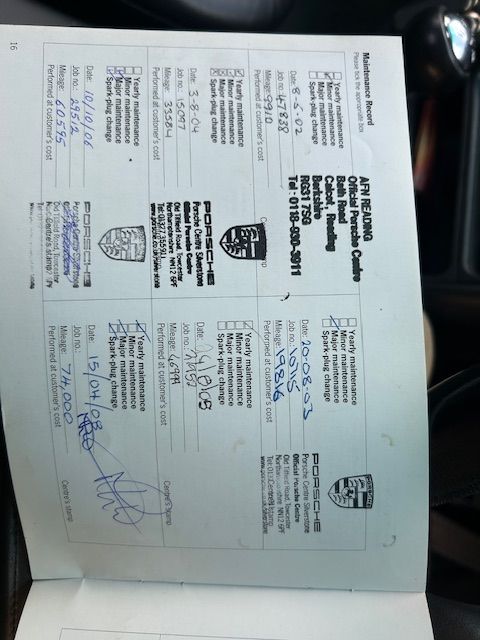 Maintenance Record
Please tick the appropriate box
Yearly maintenance
Minor maintenance
Major maintenance
Spark-plug change
Date: 8-5-02
Job no.: 47838
Mileage: 9910
Performed at customer's cost
AFN READING
Official Porsche Centre
Bath Road
Calcot, Reading
Berkshire
RG31 7SG
Tel: 0118-930-3911
Yearly maintenance
Minor maintenance
Major maintenance
Spark-plug change
Date: 20-08-03
Job no.:
Mileage: 19816
Performed at customer's cost
PORSCHE
Porsche Centre Silverstone
Official Porsche Centre
Old Tiffield Road, Towcester
Northamptonshire NN12 6PF
Yearly maintenance
Minor maintenance
Major maintenance
Spark-plug change
Date: 3-8-04
Job no.: 15097
Mileage: 33584
Performed at customer's cost
PORSCHE
Porsche Centre Silverstone
Official Porsche Centre
Old Tiffield Road, Towcester
Northamptonshire NN12 6PF
Tel: 01327 355911
Yearly maintenance
Minor maintenance
Major maintenance
Spark-plug change
Date:
Job no.:
Mileage:
Performed at customer's cost
Centre's stamp
Yearly maintenance
Minor maintenance
Major maintenance
Spark-plug change
Date: 10/10/06
Job no.: 29512
Mileage: 60595
Performed at customer's cost
PORSCHE
Old Tiffield Road, Towcester
Centre's stamp
Yearly maintenance
Minor maintenance
Major maintenance
Spark-plug change
Date: 15/04/08
Job no.:
Mileage: 74,000
Performed at customer's cost
Centre's stamp
16